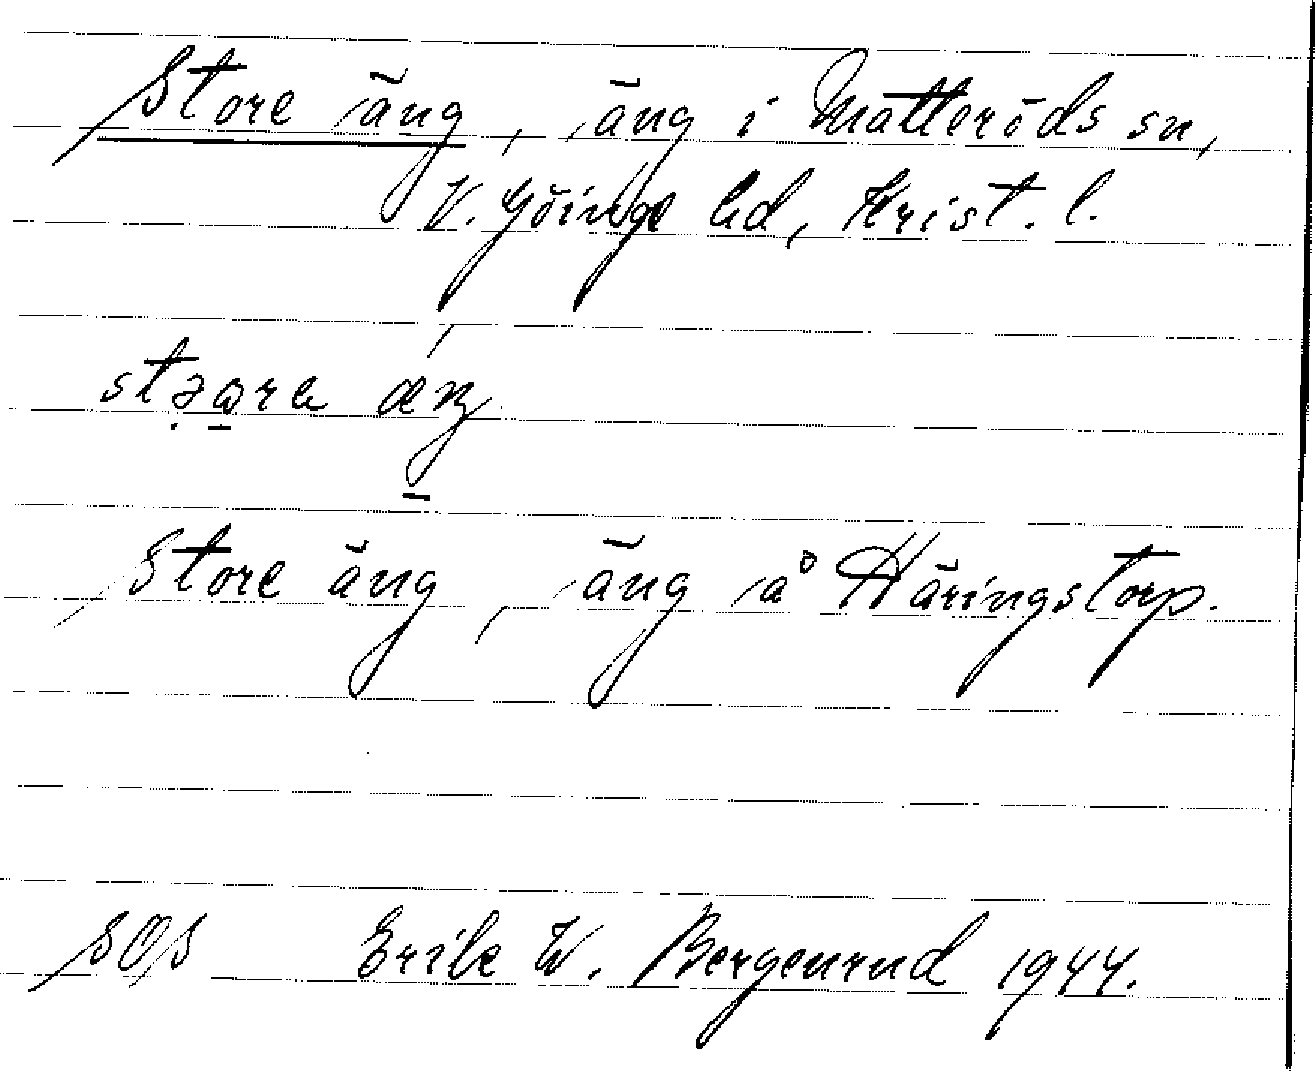 Store äng, äng i Matteröds sn,
V. Göinge hd, Krist. l.
Store äng, äng å Häringstorp.
SOS Erik W. Bergenrud 1944.